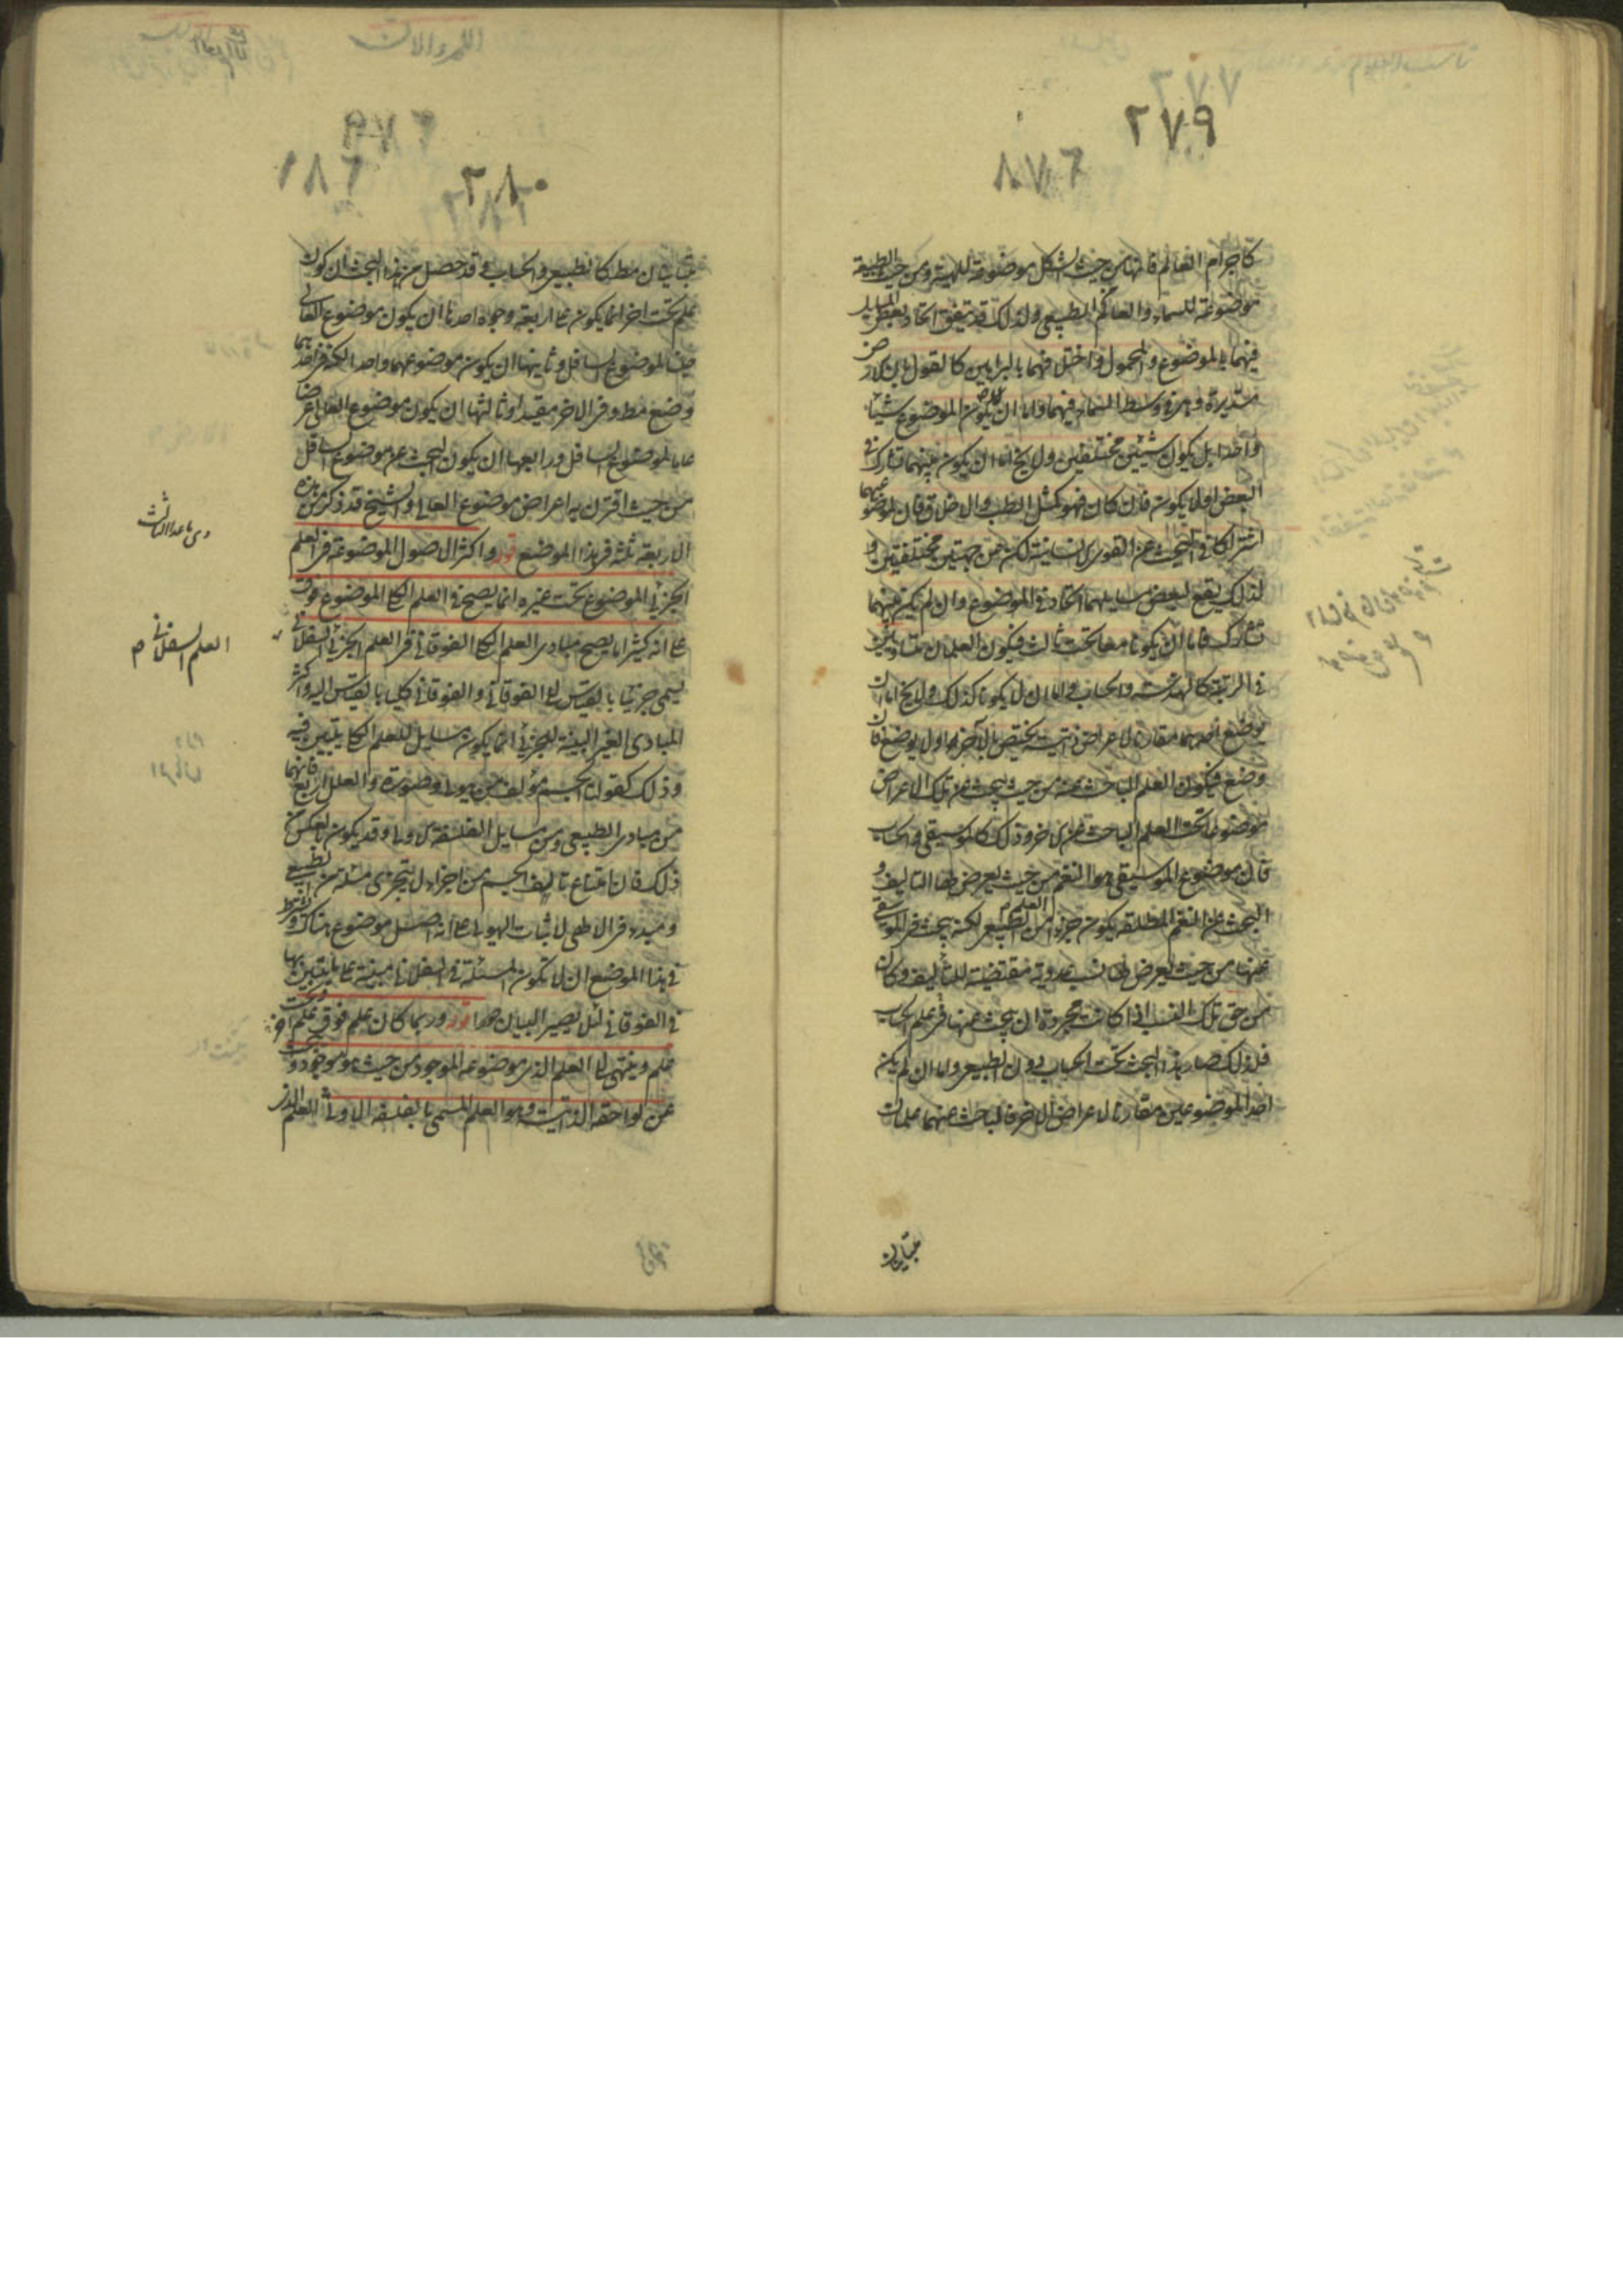 ٢٧٩
كاجرام العالم فانها من حيث الشكل موضوعة للهيئة ومن حيث الطبيعة
موضوعة للسماء والعالم الطبيعى ولذلك قد يتفق اتحاد بعض المسايل
فيهما بالموضوع والمحمول واختلافهما بالبراهين كالقول بان الارض
مستديرة وهى فى وسط السماء فيهما واما ان لا يكون الموضوع شيئا
واحدا بل يكون شيئين مختلفين ولا يخ اما ان يكون بينهما تشارك فى
البعض او لا يكون فان كان فهو كمثل الطب والاخلاق فان لموضوعيهما
اشتراكا فى البحث عن القوى الانسانية لكن من جهتين مختلفتين و
لذلك يقع لبعض مسايلهما اتحاد فى الموضوع وان لم يكن بينهما
تشارك فاما ان يكونا معا تحت ثالث فيكون العلمان متساويين
فى الرتبة كالهندسة والحساب واما ان لا يكونا كذلك ولا يخ اما ان
يوضع احدهما مقارنا لاعراض ذاتية يختص بالآخر او لا يوضع فان
وضع فيكون العلم الباحث عنه من حيث يبحث عن تلك الاعراض
موضوعا تحت العلم الباحث عن الاخر وذلك كالموسيقى والحساب
فان موضوع الموسيقى هو النغم من حيث يعرض لها التاليف و
البحث عن النغم المطلقة يكون جزءا من العلم الطبيعى لكنه يبحث فى الموسيقى
عنها من حيث يعرض لها نسب عددية مقتضية للتأليف وكان
من حق تلك النسب اذا كانت مجردة ان يبحث عنها فى علم الحساب
فلذلك صار هذا البحث تحت الحساب دون الطبيعى واما ان لم يكن
احد الموضوعين مقارنا لاعراض الاخر فالباحث عنهما علمان
متباينان
٢٨٠
متباينان مطلقا كالطبيعى والحساب فقد حصل من هذا البحث ان كون
علم تحت اخر انما يكون على اربعة وجوه احدها ان يكون موضوع العالى
جنسا لموضوع السافل وثانيها ان يكون موضوعهما واحدا لكنه فى احدهما
وضع مطلقا وفى الاخر مقيدا وثالثها ان يكون موضوع العالى عرضا
عاما لموضوع السافل ورابعها ان يكون البحث عن موضوع السافل
من حيث اقترن به اعراض موضوع العالى والشيخ قد ذكر من هذه
الاربعة ثلثة فى هذا الموضع قوله واكثر الاصول الموضوعة فى العلم
الجزئى الموضوع تحت غيره انما يصح فى العلم الكلى الموضوع فوق
على انه كثيرا ما يصح مبادى العلم الكلى الفوقانى فى العلم الجزئى السفلانى
يسمى جزئيا بالقياس الى الفوقانى والفوقانى كليا بالقياس اليه واكثر
المبادى الغير البينة للجزئى انما يكون مسايل للعلم الكلى يتبين فيه
وذلك كقولنا الجسم مؤلف من هيولى وصورة والعلل اربع فانهما
من مبادى الطبيعى ومن مسايل الفلسفة الاولى وقد يكون بالعكس من
ذلك فان امتناع تاليف الجسم من اجزاء لا يتجزى مسئلة من الطبيعى
ومبدء فى الالهى لاثبات الهيولى على انه اصل موضوع هناك ويشترط
فى هذا الموضع ان لا تكون المسئلة فى السفلانى مبينة على ما يتبين بها
فى الفوقانى لئلا يصير البيان دورا قوله وربما كان علم فوق علم وتحت
علم وينتهى الى العلم الذى موضوعه الموجود من حيث هو موجود ويبحث
عن لواحقه الذاتية وهو العلم المسمى بالفلسفة الاولى العلم الذى
العلم السفلانى م